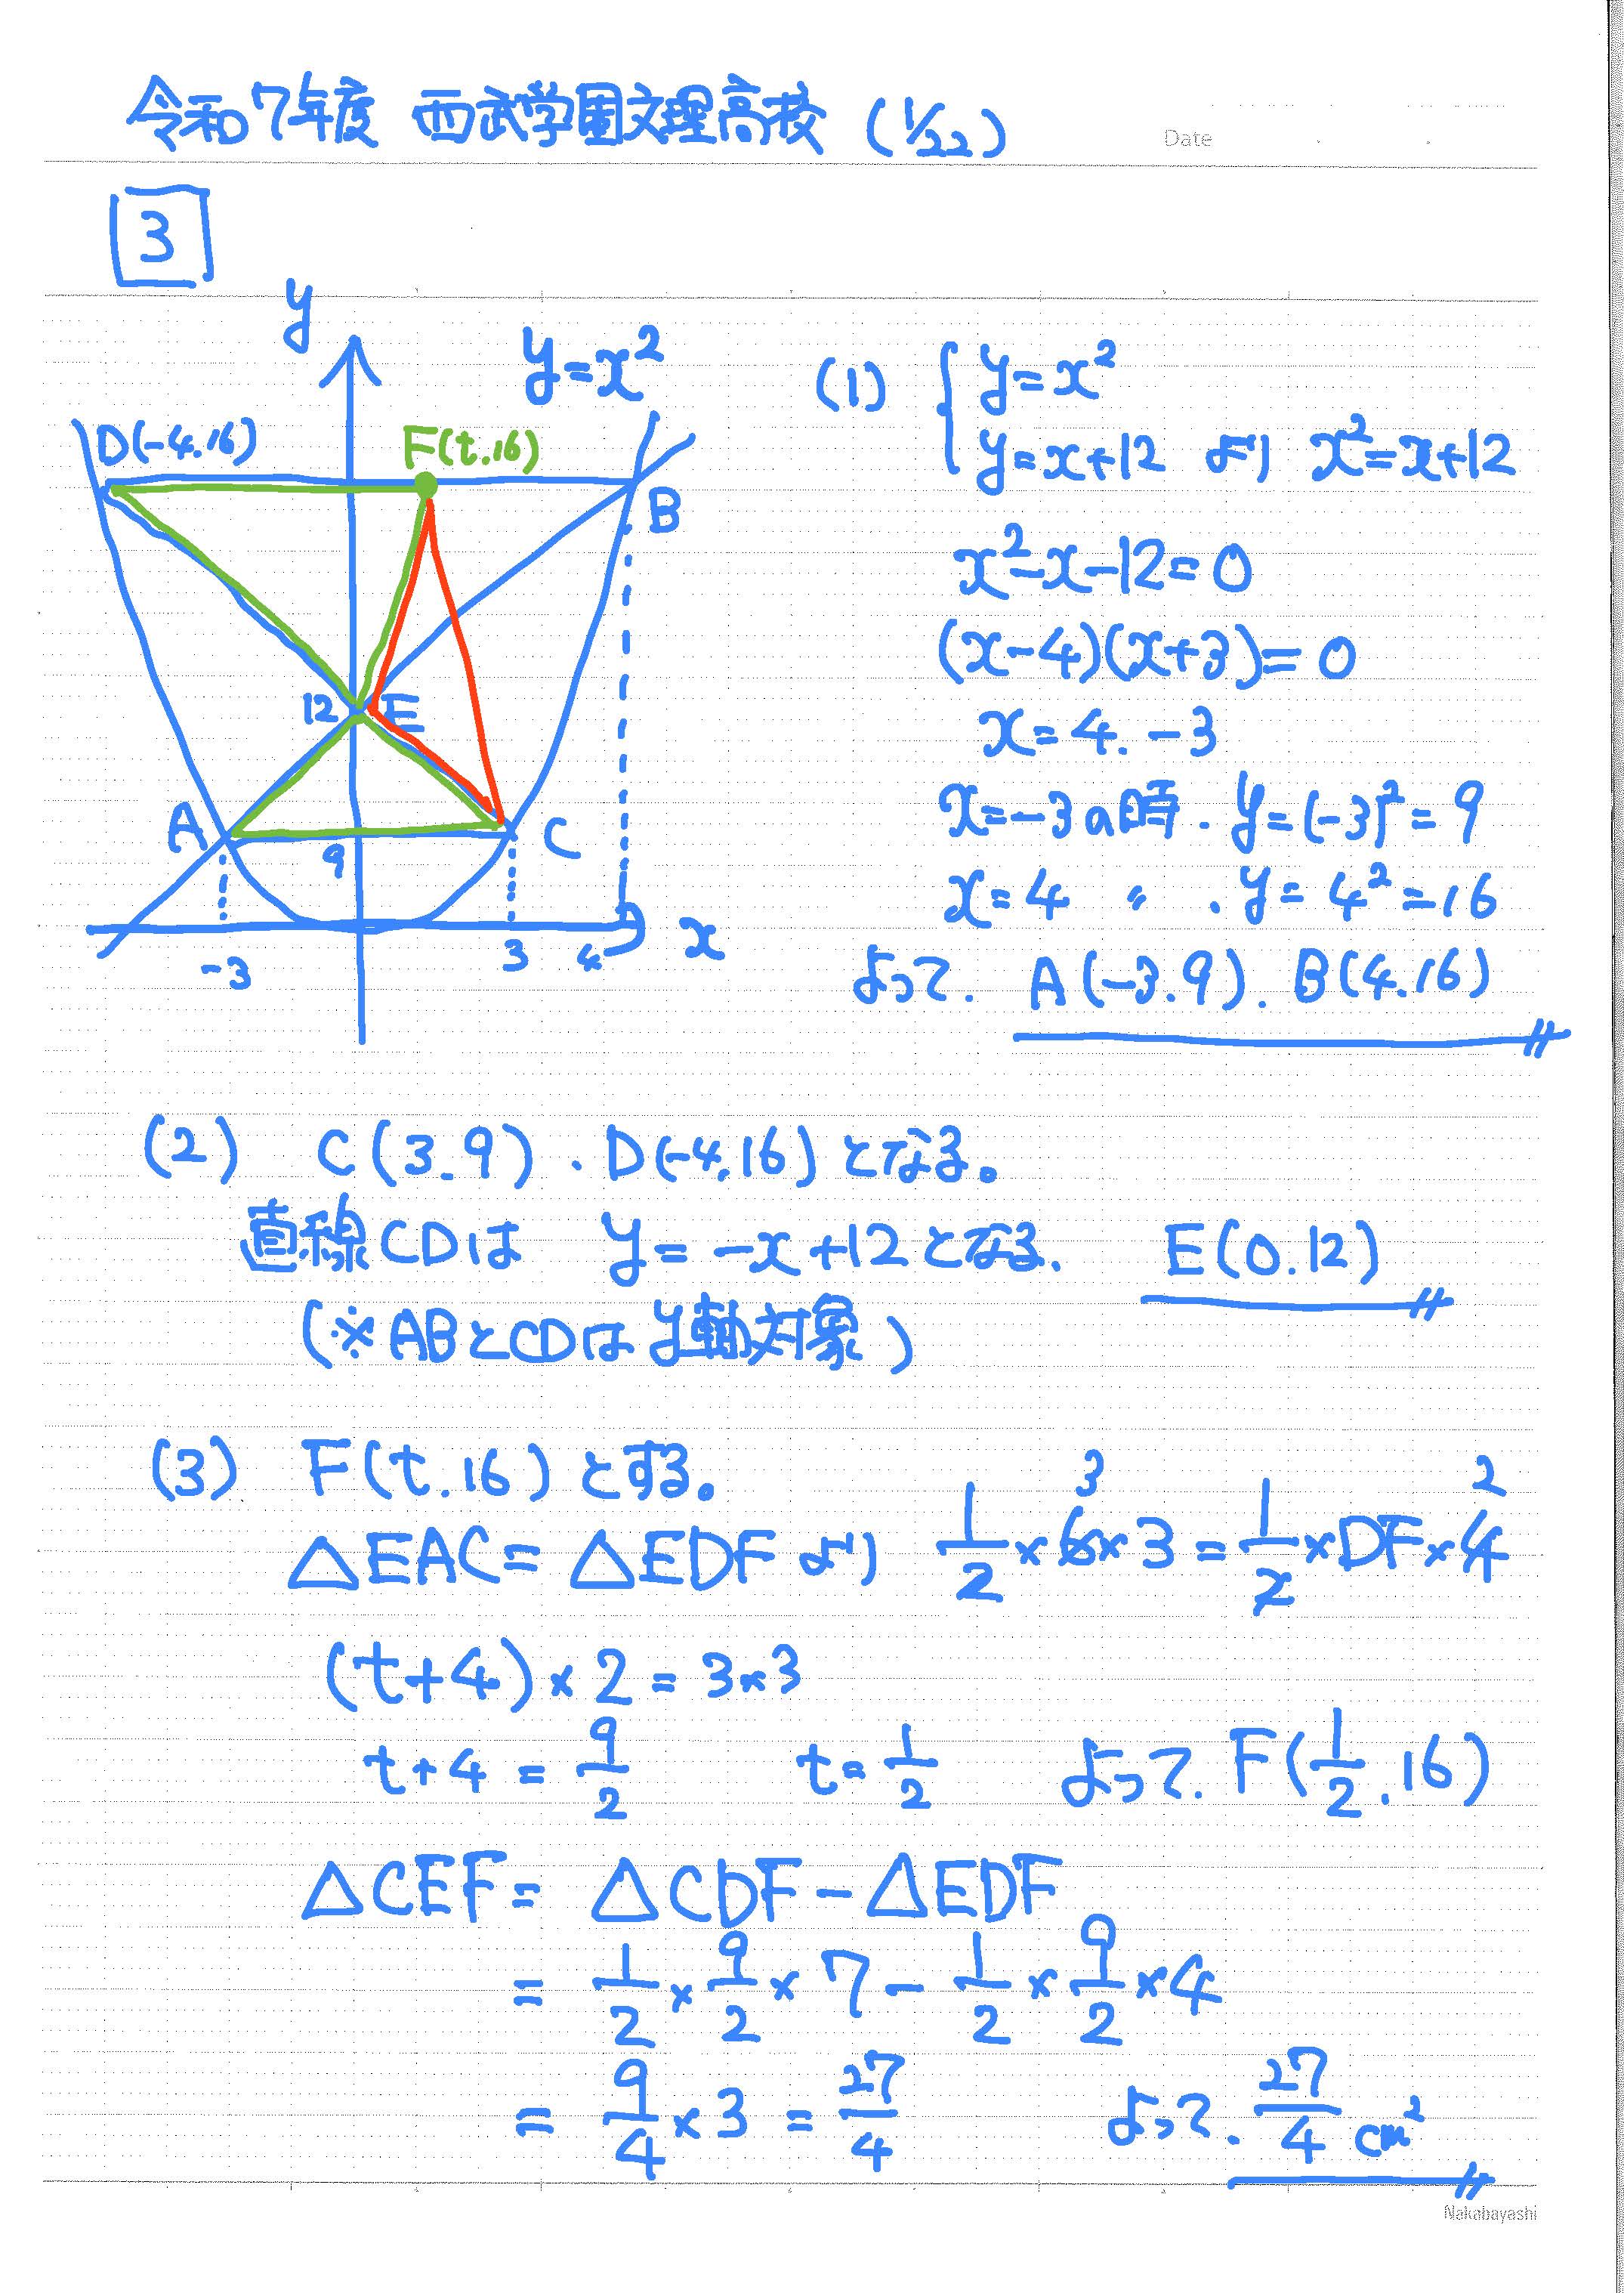 令和7年度 西武学園文理高校 (1/22)
Date
3
y
y=x²
D(-4.16)
F(t.16)
B
12
E
A
C
9
-3
3
4
x
(1) { y=x²
y=x+12 より x²=x+12
x²-x-12=0
(x-4)(x+3)=0
x=4.-3
x=-3の時. y=(-3)²=9
x=4 〃 . y=4²=16
よって. A(-3.9). B(4.16)
(2) C(3.9). D(-4.16)となる。
直線CDは y=-x+12となる. E(0.12)
(※ABとCDはy軸対象)
(3) F(t.16)とする。
3 2
△EAC=△EDFより 1/2×6×3=1/2×DF×4
(t+4)×2=3×3
t+4=9/2 t=1/2 よって. F(1/2.16)
△CEF=△CDF-△EDF
=1/2×9/2×7-1/2×9/2×4
=9/4×3=27/4 よって. 27/4 cm²
Nakabayashi